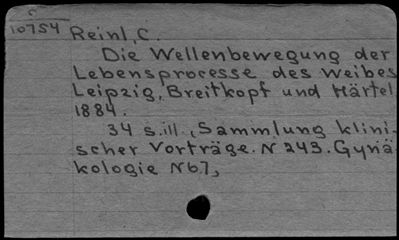 c
10754 Reinl, C.
Die Wellenbewegung der
Lebensprocesse des Weibes
Leipzig, Breitkopf und Härtel,
1884.
34 s. ill., Sammlung klini-
scher Vorträge. N 243. Gynä
kologie N 67,